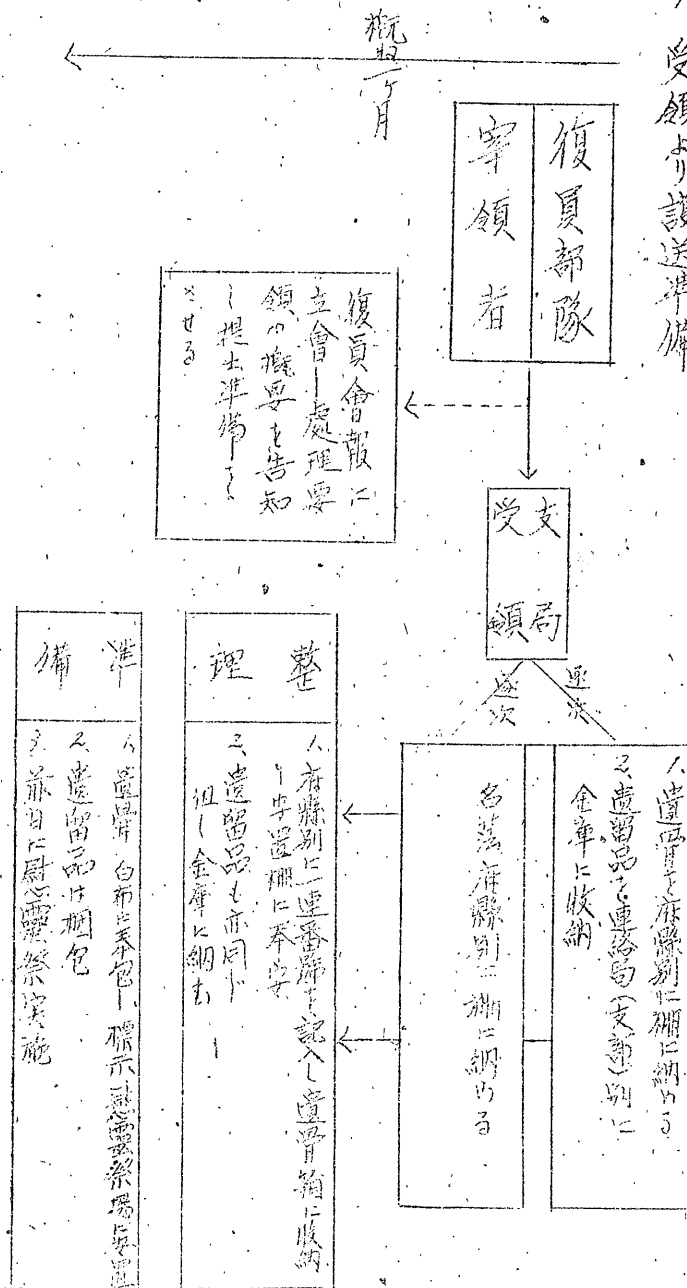 受領より護送準備
概ね一ヶ月
復員部隊
宰領者
復員會報に
立會し處理要
領の概要を告知
し提出準備を
させる
支局
受領
逐次
逐次
1、遺骨を府縣別に棚に納める
2、遺留品を連絡局(支部)別に
金庫に收納
名簿府縣別に棚に納める
整理
1、府縣別に一連番號を記入し遺骨箱に收納
し安置棚に奉安
2、遺留品も亦同じ
但し金庫に納む
準備
1、遺骨 白布に奉包し、標示慰霊祭場に安置
2、遺留品は梱包
3、前日に慰靈祭実施